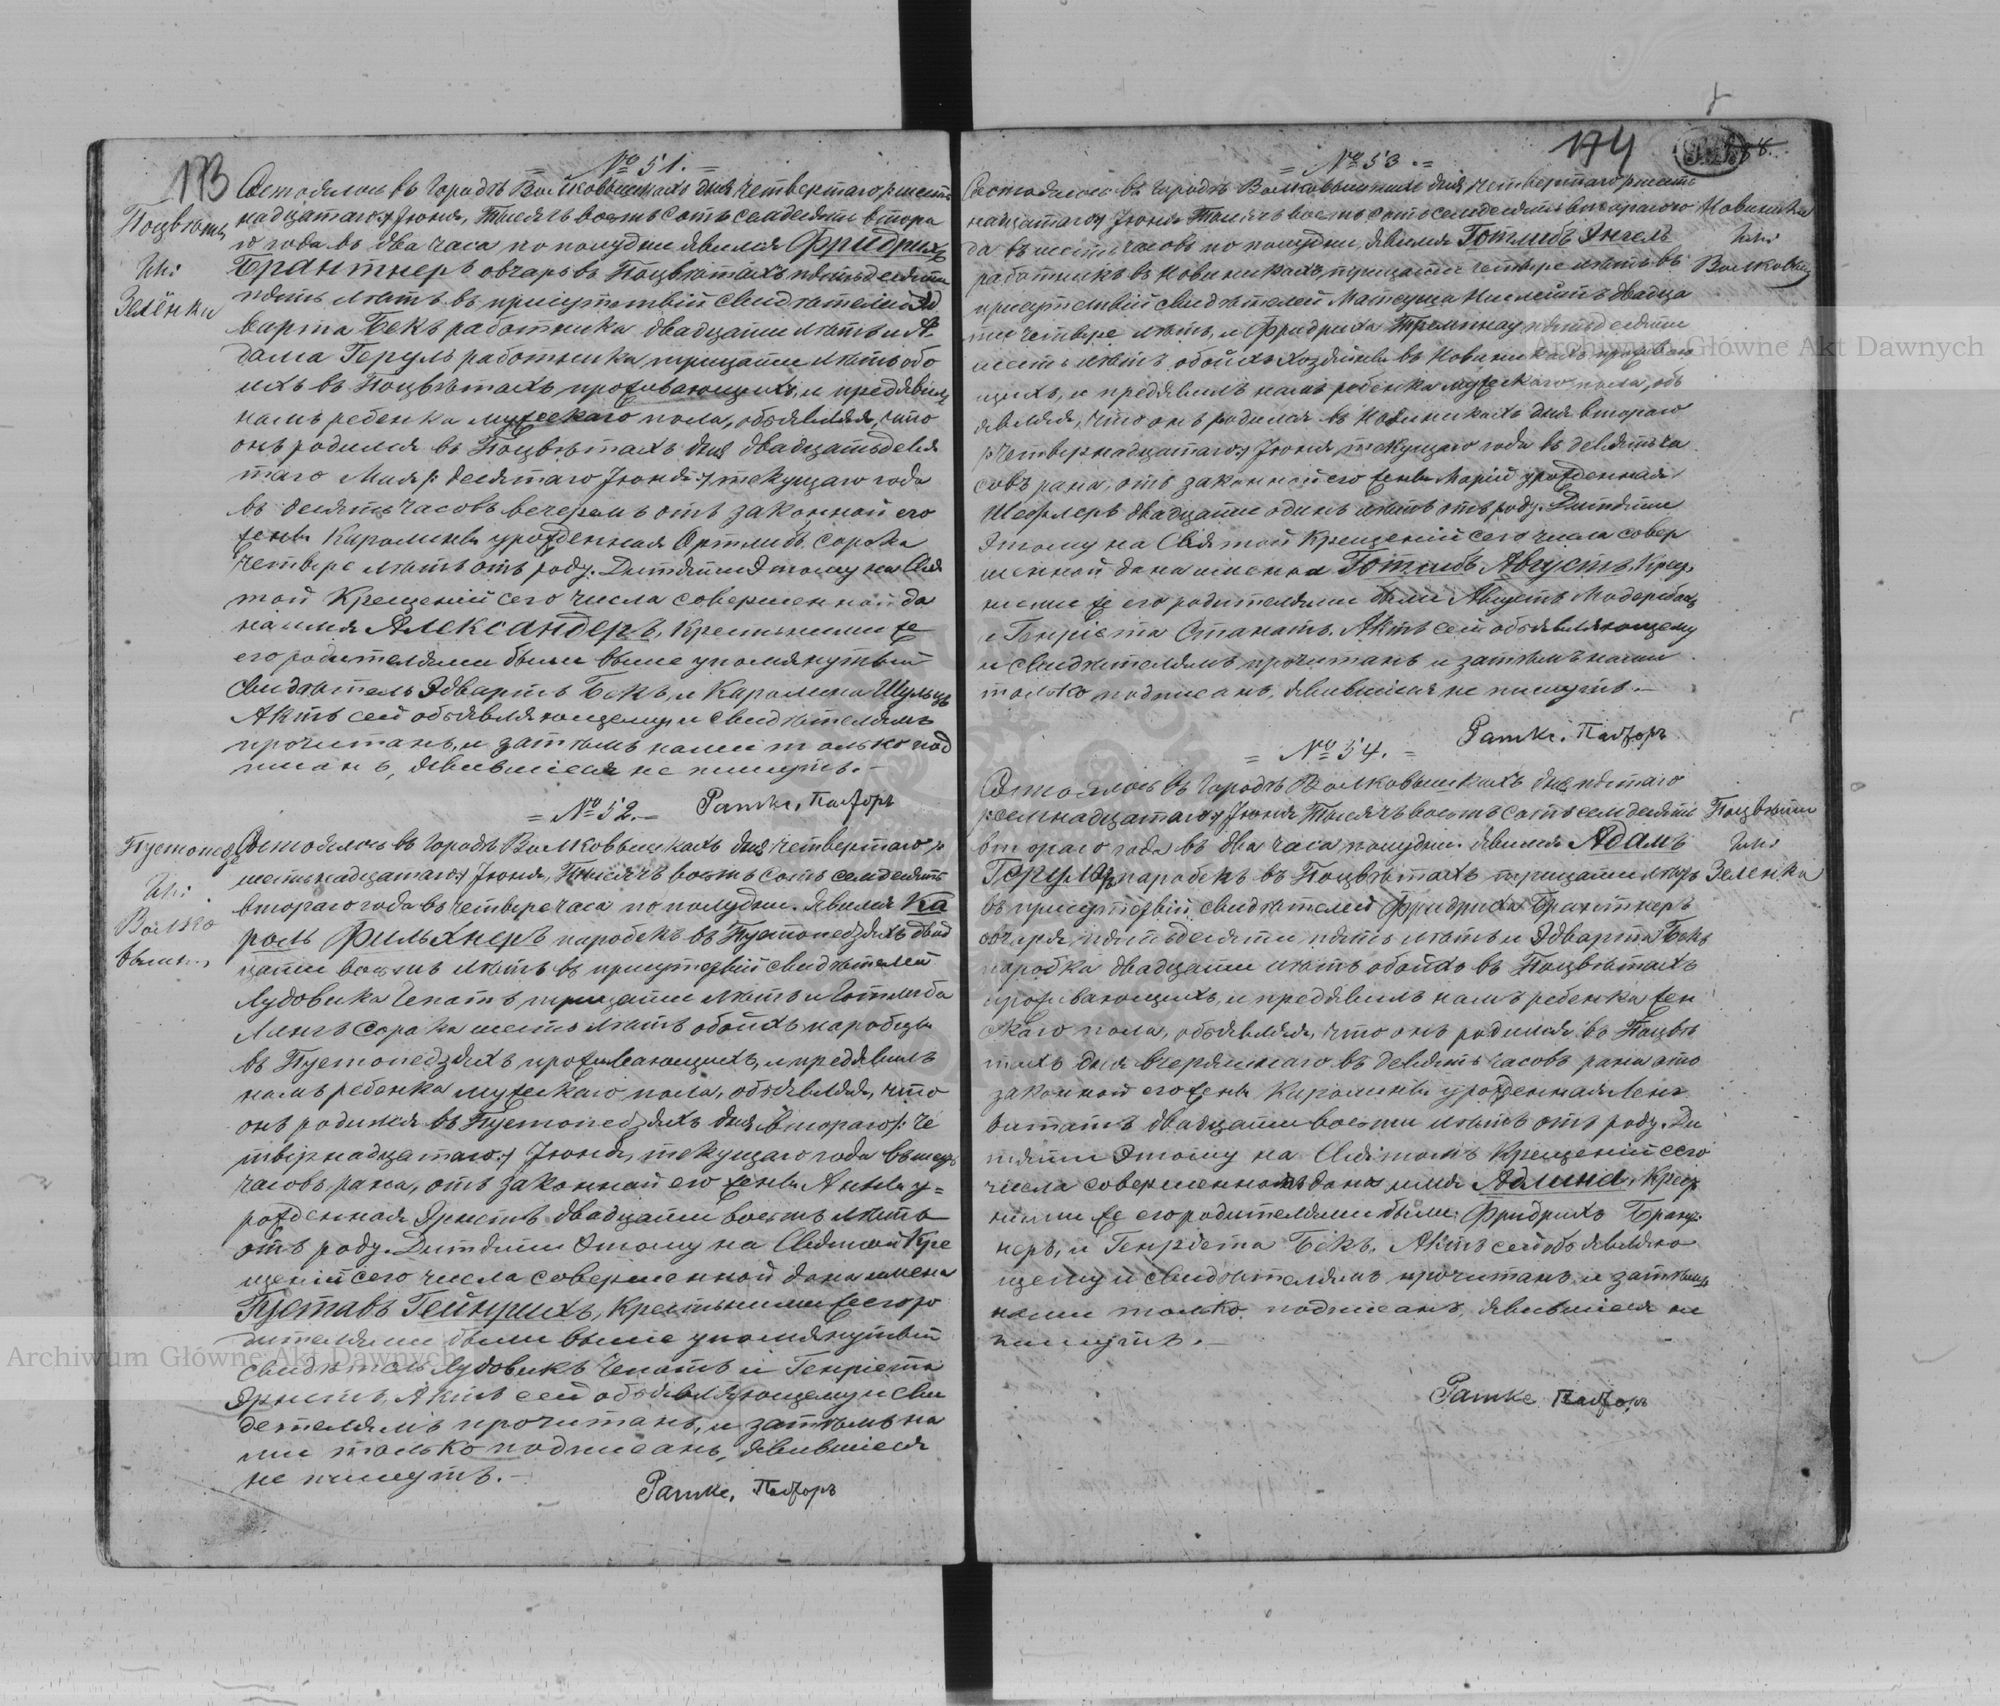 173
= № 51. =
Поцвѣты
Гми:
Зелёнки
Состоялось въ Городѣ Волковышкахъ дня четвертаго /: шест
надцатаго :/ Іюня, Тысячъ восемь сотъ семдесять втора
го года въ два часа по полудни явился Фридрихъ
Брантнеръ овчаръ въ Поцвѣтахъ пятьдесяти
пять лѣтъ въ присутствіи свидѣтелей Эд
варта Бекъ работника двадцати лѣтъ и А
дама Геруль работника, трицати лѣтъ обо
ихъ въ Поцвѣтахъ проживающихъ, и предявилъ
намъ ребенка мужескаго пола, объявляя, что
онъ родился въ Поцвѣтахъ дня двадцать девя
таго Мая /: десятаго Іюня :/ текущаго года
въ десять часовъ вечеромъ отъ законной его
жены Каролины урожденная Ортлибъ, сорока
четыре лѣтъ отъ роду. Дитяти этому на Свя
той Крещеніи сего числа совершенной да
на имя Александеръ, Крестными же
его родителями были выше упомянутый
свидѣтель Эдвартъ Бекъ, и Каролина Шульцъ
Актъ сей объявляющему и свидѣтелямъ
прочитанъ, и затѣмъ нами только под
писанъ, явившіеся не пишутъ. –
Ратке, Пасторъ
= № 52. =
Пустопедзе
Гми:
Волко
вышк,
Состоялось въ Городѣ Волковышкахъ дня четвертаго /:
шестьнадцатаго :/ Іюня, Тысячъ восемь сотъ семдесять
втораго года въ четыре часа по полудни. Явился Ка
роль Фильхнеръ паробекъ въ Пустопедзяхъ двад
цати восемь лѣтъ въ присутствіи свидѣтелей
Лудовика Чепатъ, трицати лѣтъ и Готлиба
Лянгъ сорока шесть лѣтъ обойхъ паробцы
въ Пустопедзяхъ проживающихъ, и предявилъ
намъ ребенка мужескаго пола, объявляя, что
онъ родился въ Пустопедзяхъ дня втораго /: че
твірнадцатаго :/ Іюня, текущаго года въ шесть
часовъ рана, отъ законной его жены Анны у=
рожденная Эрнстъ двадцати восемь лѣтъ
отъ роду. Дитяти этому на Святой Кре
щеніи сего числа совершенной дана имена
Густавъ Гейнрихъ, Крестными же его ро
дителями были выше упомянутый
свидѣтель Лудовикъ Чепатъ и Генріета
Эрнстъ, Актъ сей объявляющему и сви
детелямъ прочитанъ, и затѣмъ на
ми только подписанъ, явившіеся
не пишутъ. –
Ратке, Пасторъ
174
88.
= № 53. =
Новиники
Гми:
Волковыш
Состоялось въ Городѣ Волковышкахъ дня четвертаго /: шест
надцатаго :/ Іюня Тысячъ восемь сотъ семдесять втораго го
да въ шесть часовъ по полудни, явился Готлибъ Энгель
работникъ въ Новиникахъ, трицати четыре лѣтъ въ
присутствіи свидѣтелей Матеуша двадца
ти четыре лѣтъ, и Фридриха пятьдесяти
шесть лѣтъ обойхъ хозяевъ въ Новиникахъ проживаю
щихъ, и предявилъ намъ ребенка мужескаго пола, объ
являя, что онъ родился въ Новиникахъ дня втораго
/: четвернадцатаго :/ Іюня, текущаго года въ девять ча
совъ рана, отъ законной его жены Маріи урожденная
Шефлеръ двадцати одинъ лѣтъ отъ роду. Дитяти
этому на Святой Крещеніи сего числа совер
шенной дана имена Готлибъ Августъ, Крест
ными же его родителями были Августъ
и Генріета Станатъ. Актъ сей объявляющему
и свидѣтелямъ прочитанъ и затѣмъ нами
только подписанъ, явившіеся не пишутъ. –
Ратке, Пасторъ
= № 54. =
Поцвѣти
Гми:
Зеленка
Состоялось въ Городѣ Волковышкахъ дня пятаго
/: семнадцатаго :/ Іюня Тысячъ восемь сотъ семдесяти
втораго года въ два часа полудни. Явился Адамъ
Геруль паробекъ въ Поцвѣтахъ трицати лѣтъ
въ присутствіи свидѣтелей Фридриха Брантнеръ
овчаря пятьдесяти пять лѣтъ и Эдварта Бекъ
паробка двадцати лѣтъ обойхъ въ Поцвѣтахъ
проживающихъ, и предявилъ намъ ребенка жен
скаго пола, объявляя, что онъ родился въ Поцвѣ
тахъ дня вчеряшнаго въ девять часовъ рана отъ
законной его жены Каролины урожденная Ленг
витатъ двадцати восемь лѣтъ отъ роду. Ди
тяти этому на Святомъ Крещеніи сего
числа совершенномъ дано имя Адлина, Крест
ными же его родителями были: Фридрихъ Брант
неръ, и Генріета Бекъ. Актъ сей объявляю
щему и свидѣтелямъ прочитанъ и затѣмъ
нами только подписанъ, явившіеся не
пишутъ. –
Ратке Пасторъ
Archiwum Główne Akt Dawnych
Archiwum Główne Akt Dawnych